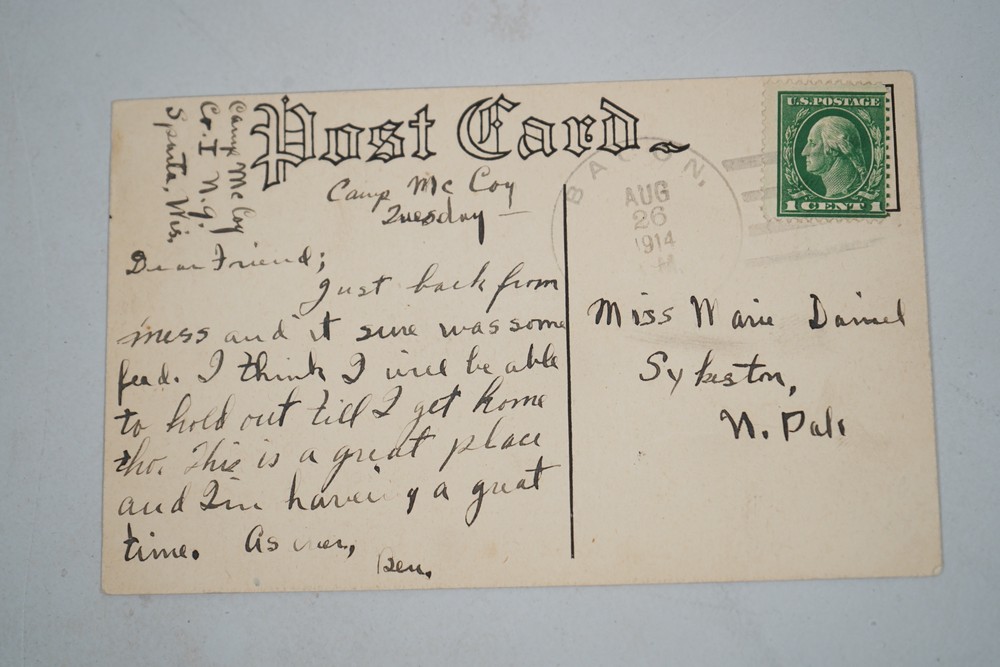 Post Card
Camp McCoy
Co. I N.g.
Sparta, Wis.
Camp McCoy
Tuesday —
Dear Friend;
Just back from
mess and it sure was some
feed. I think I will be able
to hold out till I get home
tho. This is a great place
and I'm having a great
time. As ever,
Ben.
BACON.
AUG
26
1914
M
U.S. POSTAGE
1 CENT 1
Miss Marie Daniel
Sykeston,
N. Dak